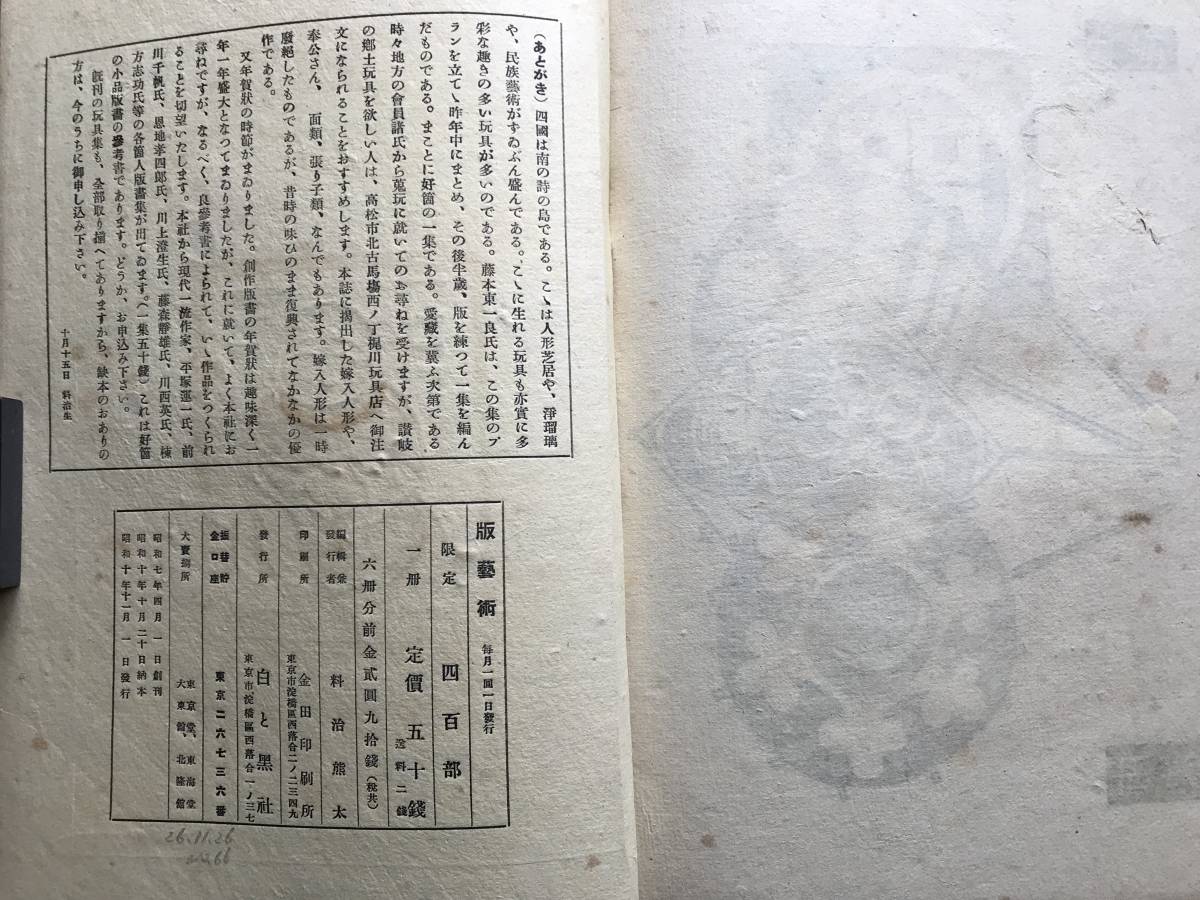 (あとがき) 四國は南の詩の島である。こゝは人形芝居や、淨瑠璃
や、民族藝術がずゐぶん盛んである。こゝに生れる玩具も亦實に多
彩な趣きの多い玩具が多いのである。藤本東一良氏は、この集のプ
ランを立てゝ昨年中にまとめ、その後半歲、版を練つて一集を編ん
だものである。まことに好箇の一集である。愛藏を冀ふ次第である
時々地方の會員諸氏から蒐玩に就いてのお尋ねを受けますが、讃岐
の鄕土玩具を欲しい人は、高松市北古馬塲西ノ丁梶川玩具店へ御注
文になられることをおすすめします。本誌に揭出した嫁入人形や、
奉公さん、面類、張り子類、なんでもあります。嫁入人形は一時
廢絕したものであるが、昔時の味ひのまま復興されてなかなかの優
作である。
又年賀狀の時節がまゐりました。創作版畫の年賀狀は趣味深く一
年一年盛大となつてまゐりましたが、これに就いて、よく本社にお
尋ねですが、なるべく、良參考書によられて、いゝ作品をつくられ
ることを切望いたします。本社から現代一流作家、平塚運一氏、前
川千帆氏、恩地孝四郎氏、川上澄生氏、藤森靜雄氏、川西英氏、棟
方志功氏等の各箇人版畫集が出てゐます。(一集五十錢)これは好箇
の小品版畫の參考書であります。どうか、お申込み下さい。
既刊の玩具集も、全部取り揃へてありますから、缺本のおありの
方は、今のうちに御申し込み下さい。
十月十五日 料治生
版藝術 每月一回一日發行
限定 四百部
一冊 定價 五十錢 送料二錢
六冊分前金貳圓九拾錢(稅共)
編輯兼發行者 料治熊太
印刷所 金田印刷所
東京市淀橋區西落合二ノ二三四九
發行所 白と黑社
東京市淀橋區西落合一ノ三七
振替貯金口座 東京二六七三六番
大賣捌所 東京堂、東海堂
大東館、北隆館
昭和七年四月一日創刊
昭和十年十月二十日納本
昭和十年十一月一日發行
26.11.26